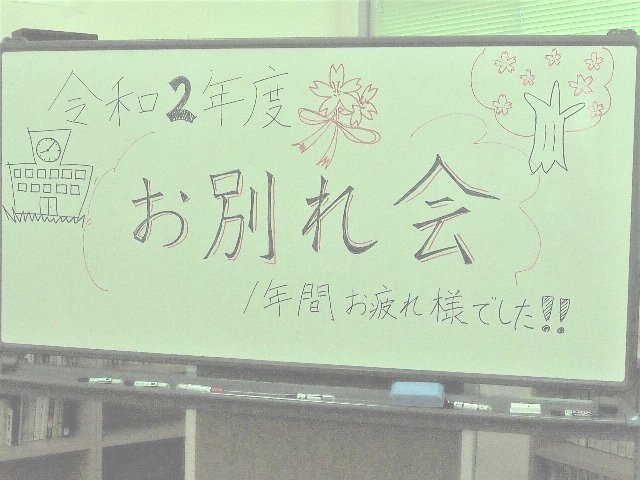 令和2年度
お別れ会
1年間お疲れ様でした!!